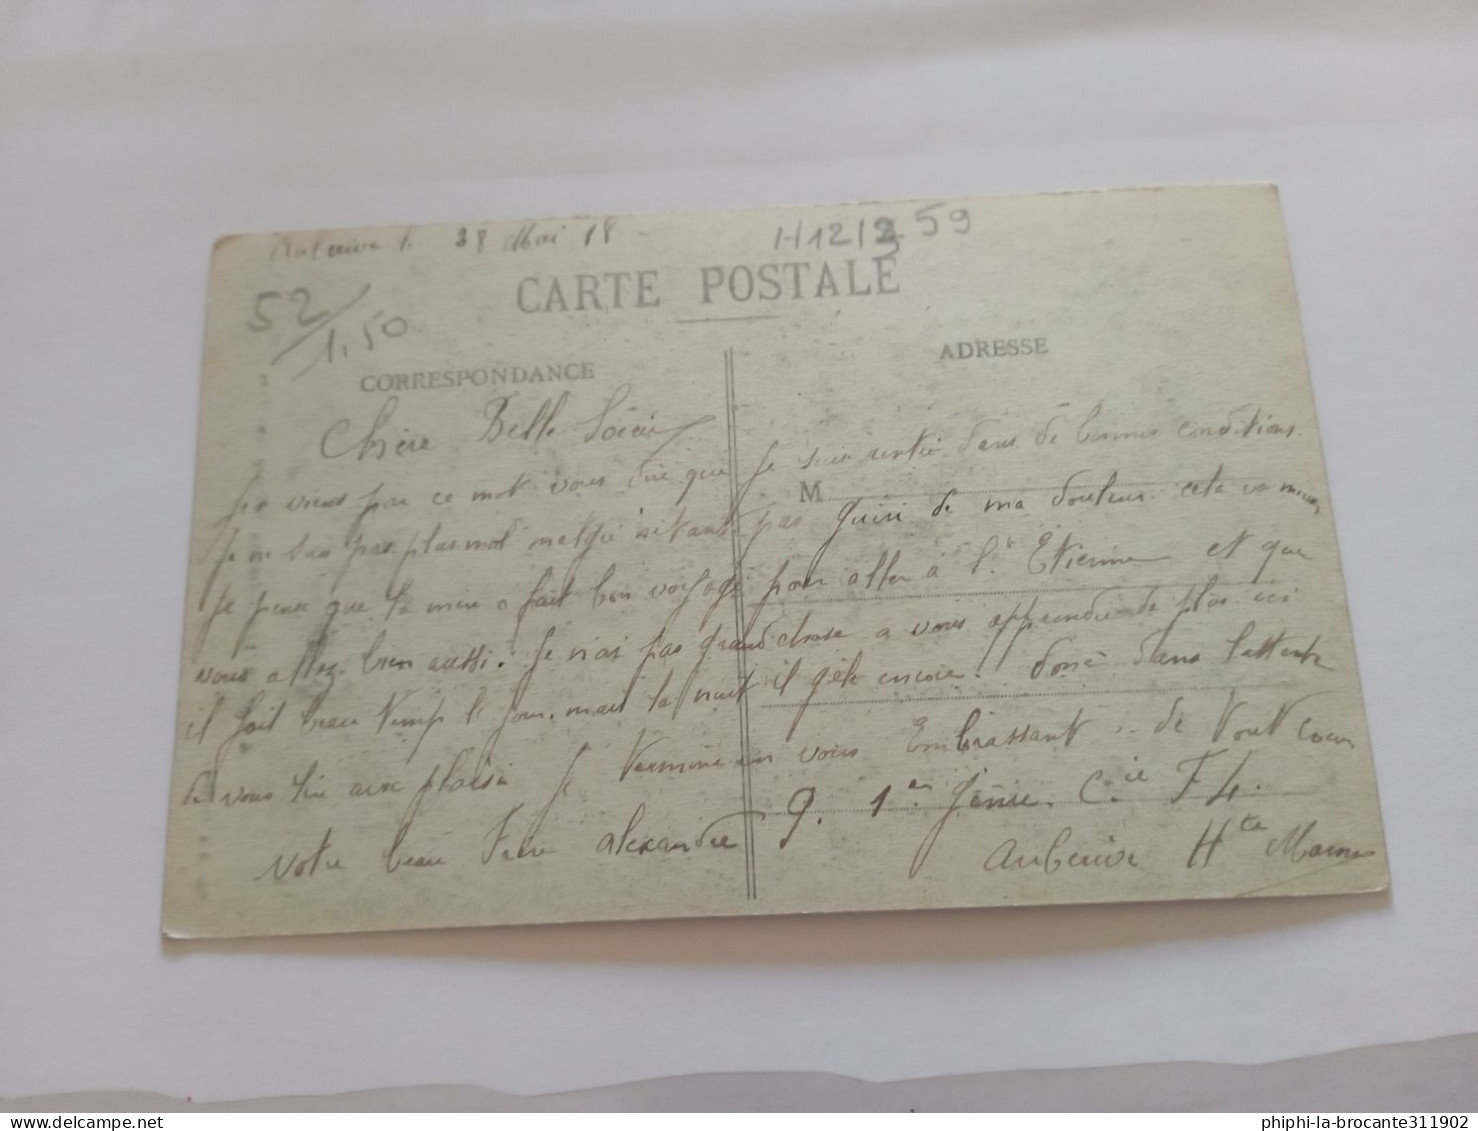 Auberive le 28 Mai 18
H12/3 59
52/1,50
CARTE POSTALE
CORRESPONDANCE
ADRESSE
M
Chère Belle Soeur
Je viens par ce mot vous dire que je suis rentré dans de bonnes conditions.
Je ne suis pas plus mal malgré n'étant pas guéri de ma douleur cela va mieux
Je pense que la mère a fait bon voyage pour aller à St Etienne et que
vous allez bien aussi. Je n'ai pas grand chose a vous apprendre de plus ici
il fait beau temp le jour, mais la nuit il gèle encore. dans l'attente
de vous lire avec plaisir Je termine en vous Embrassant de tout coeur
Votre beau Frère alexandre P. 1er Génie. Cie F4.
Auberive Hte Marne
phiphi-la-brocante311902